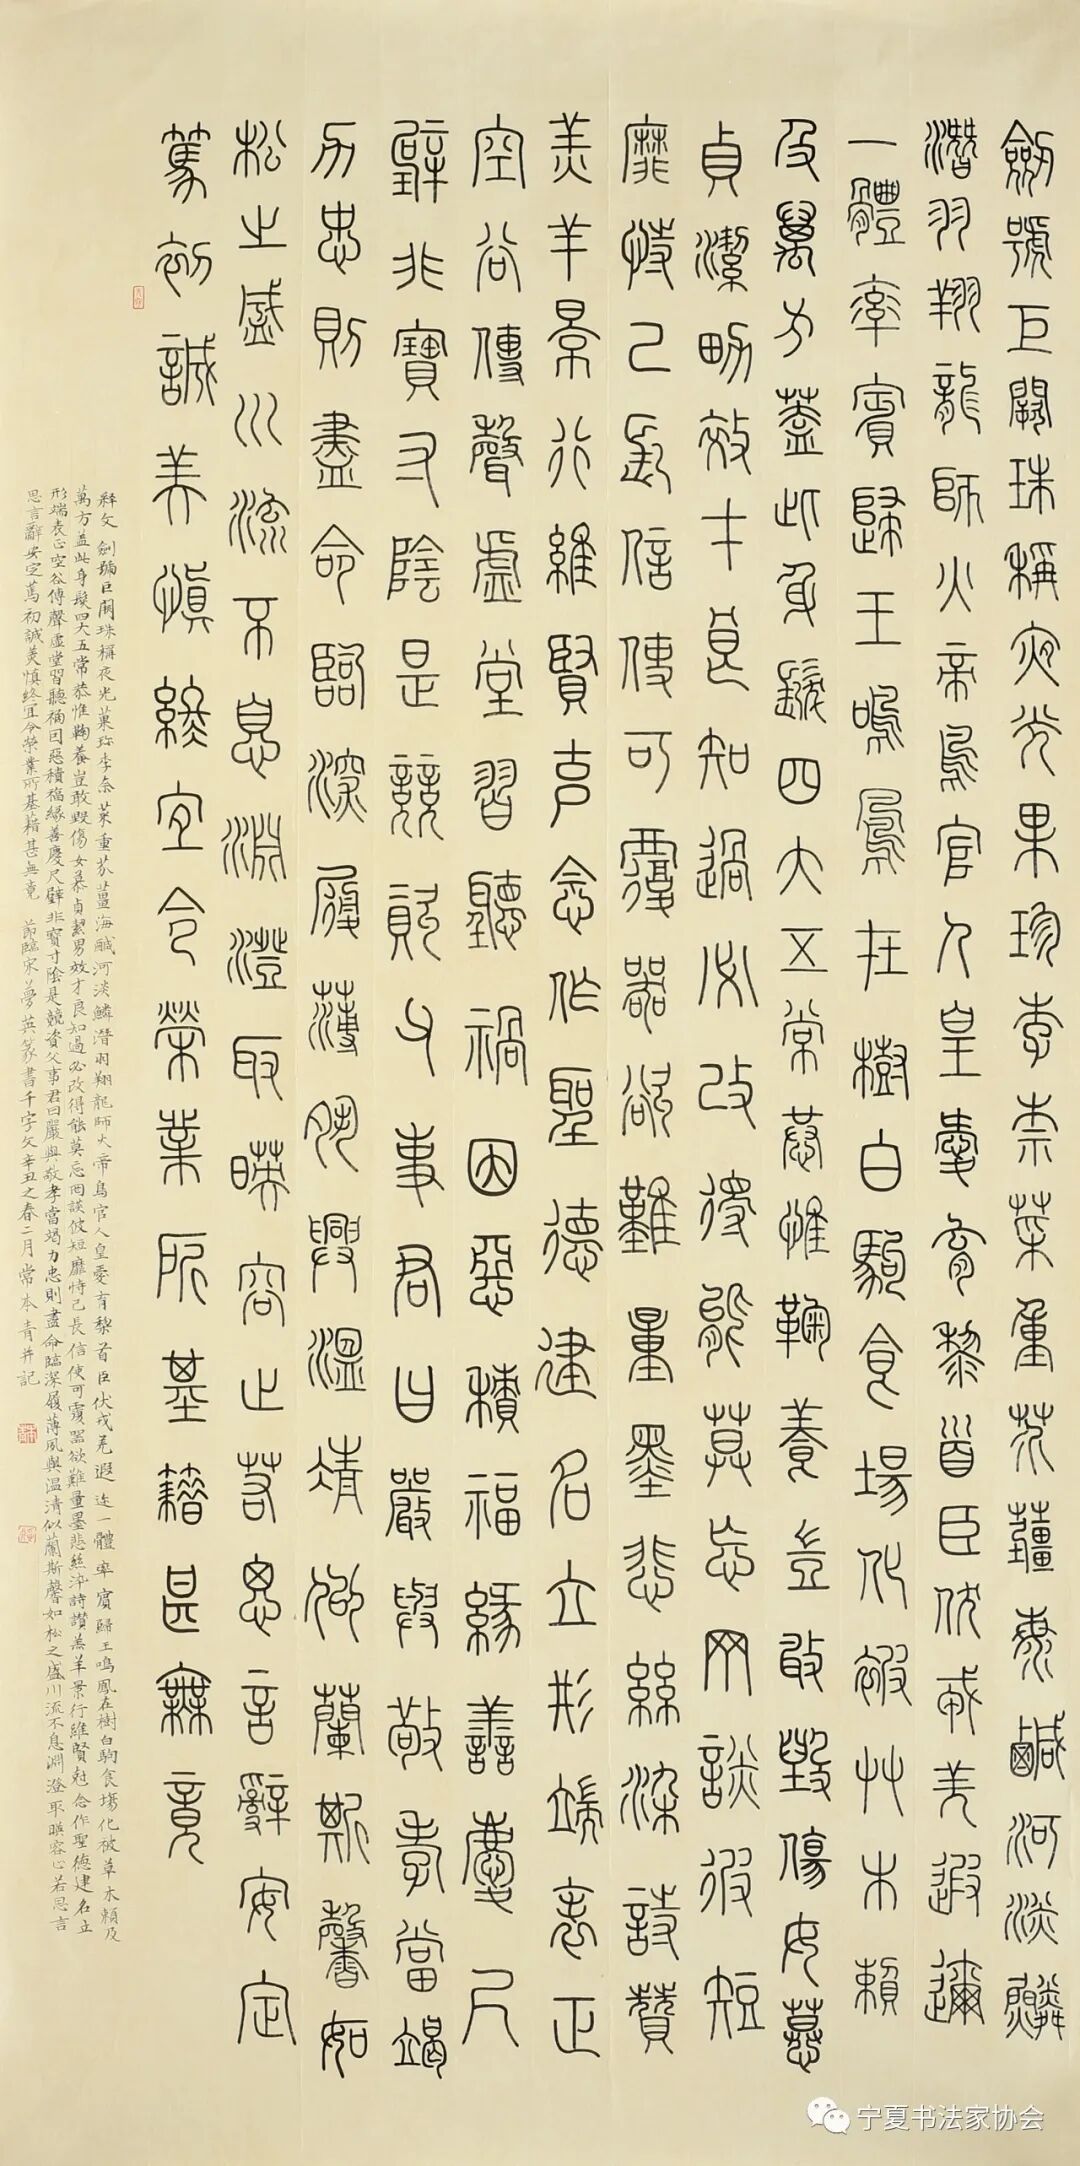 劍號巨闕珠稱夜光果珍李柰菜重芥薑海鹹河淡鱗
潛羽翔龍師火帝鳥官人皇愛育黎首臣伏戎羌遐邇
一體率賓歸王鳴鳳在樹白駒食場化被草木賴
及萬方蓋此身髮四大五常恭惟鞠養豈敢毀傷女慕
貞潔男效才良知過必改得能莫忘罔談彼短
靡恃己長信使可覆器欲難量墨悲絲染詩讚
羔羊景行維賢克念作聖德建名立形端表正
空谷傳聲虛堂習聽禍因惡積福緣善慶尺
璧非寶寸陰是競資父事君曰嚴與敬孝當竭
力忠則盡命臨深履薄夙興溫凊似蘭斯馨如
松之盛川流不息淵澄取暎容止若思言辭安定
篤初誠美慎終宜令榮業所基籍甚無竟
釋文 劍號巨闕珠稱夜光菓珍李柰菜重芥薑海鹹河淡鱗潛羽翔龍師火帝鳥官人皇愛育黎首臣伏戎羌遐迩一體率賓歸王鳴鳳在樹白駒食場化被草木賴及
萬方蓋此身髮四大五常恭惟鞠養豈敢毀傷女慕貞絜男效才良知過必改得能莫忘罔談彼短靡恃己長信使可覆器欲難量墨悲絲染詩讚羔羊景行維賢尅念作聖德建名立
形端表正空谷傳聲虛堂習聽禍因惡積福緣善慶尺璧非寶寸陰是競資父事君曰嚴與敬孝當竭力忠則盡命臨深履薄夙興温清似蘭斯馨如松之盛川流不息淵澄取暎容止若思言
思言辭安定篤初誠美慎終宜令榮業所基藉甚無竟 節臨宋夢英篆書千字文辛丑之春二月常本青并記
宁夏书法家协会